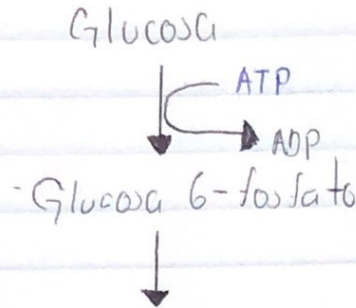 Glucosa
ATP
ADP
Glucosa 6-fosfato